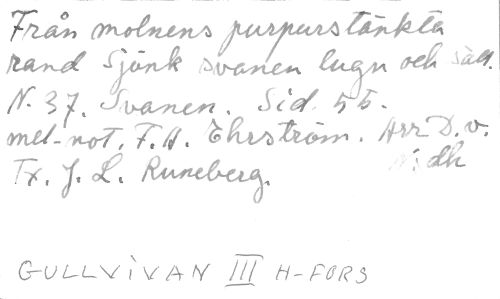 Från molnens purpurstänkta
rand Sjönk svanen lugn och säll.
N. 37. Svanen. Sid. 55.
mel. not. F. A. Ehrström. Arr D. v.
Tx. J. L. Runeberg.
GULLVIVAN III H-FORS